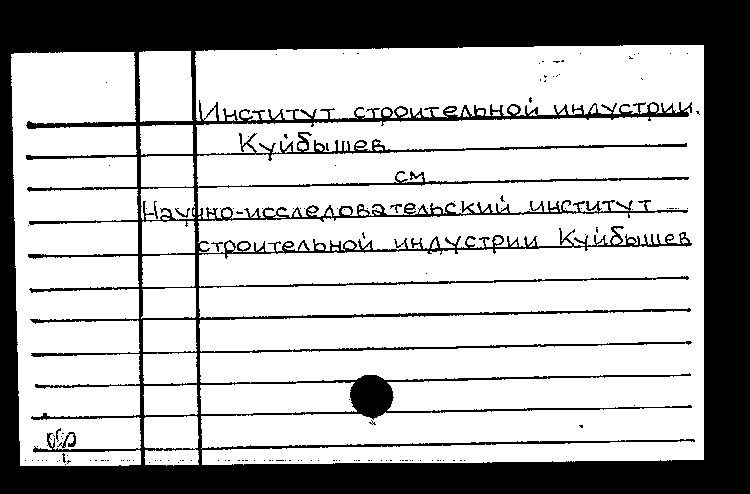 Институт строительной индустрии.
Куйбышев
см
Научно-исследовательский институт
строительной индустрии Куйбышев